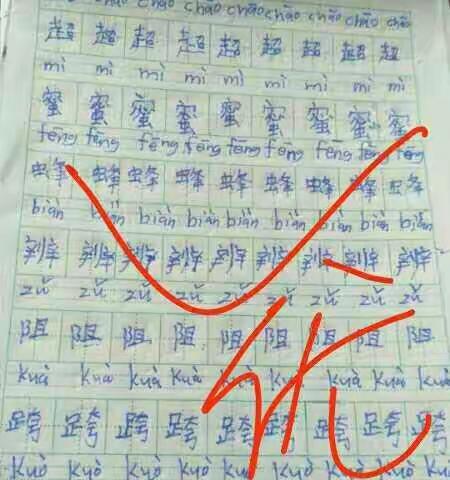 chāo chāo chāo chāo chāo chāo chāo
超 超 超 超 超 超 超 超 超
mì mì mì mì mì mì mì mì mì
蜜 蜜 蜜 蜜 蜜 蜜 蜜 蜜 蜜
fēng fēng fēng fēng fēng fēng fēng fēng fēng
蜂 蜂 蜂 蜂 蜂 蜂 蜂 蜂 蜂
biàn biàn biàn biàn biàn biàn biàn biàn biàn
辨 辨 辨 辨 辨 辨 辨 辨 辨
zǔ zǔ zǔ zǔ zǔ zǔ zǔ zǔ zǔ
阻 阻 阻 阻 阻 阻 阻 阻 阻
kuà kuà kuà kuà kuà kuà kuà kuà kuà
跨 跨 跨 跨 跨 跨 跨 跨 跨
kuò kuò kuò kuò kuò kuò kuò kuò kuò
优